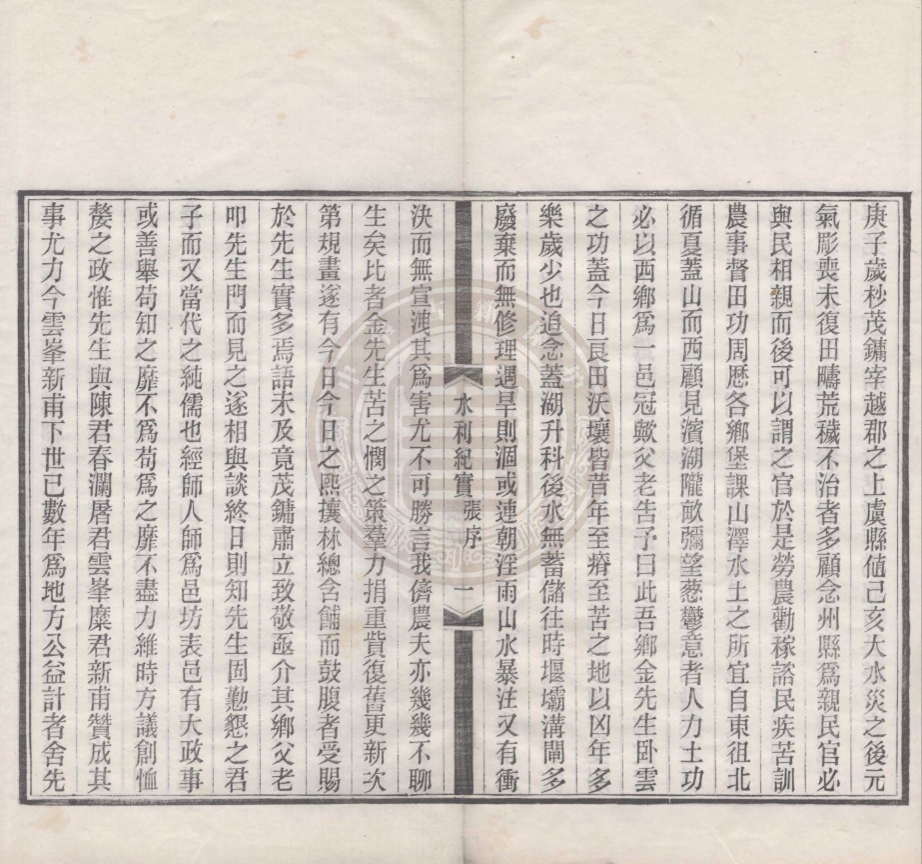 庚子歲杪茂鏞宰越郡之上虞縣值己亥大水災之後元
氣彫喪未復田疇荒穢不治者多顧念州縣爲親民官必
與民相親而後可以謂之官於是勞農勸稼諮民疾苦訓
農事督田功周歷各鄉堡課山澤水土之所宜自東徂北
循夏蓋山而西顧見濱湖隴畝彌望葱鬱意者人力土功
必以西鄉爲一邑冠歟父老告予曰此吾鄉金先生卧雲
之功蓋今日良田沃壤皆昔年至瘠至苦之地以凶年多
樂歲少也追念蓋湖升科後水無蓄儲往時堰壩溝閘多
廢棄而無修理遇旱則涸或連朝淫雨山水暴注又有衝
水利紀實 張序 一
決而無宣洩其爲害尤不可勝言我儕農夫亦幾幾不聊
生矣比者金先生苦之憫之策羣力捐重貲復舊更新次
第規畫遂有今日今日之熙攘林總含餔而鼓腹者受賜
於先生實多焉語未及竟茂鏞肅立致敬亟介其鄉父老
叩先生門而見之遂相與談終日則知先生固懃懇之君
子而又當代之純儒也經師人師爲邑坊表邑有大政事
或善舉苟知之靡不爲苟爲之靡不盡力維時方議創恤
嫠之政惟先生與陳君春瀾屠君雲峯糜君新甫贊成其
事尤力今雲峯新甫下世已數年爲地方公益計者舍先